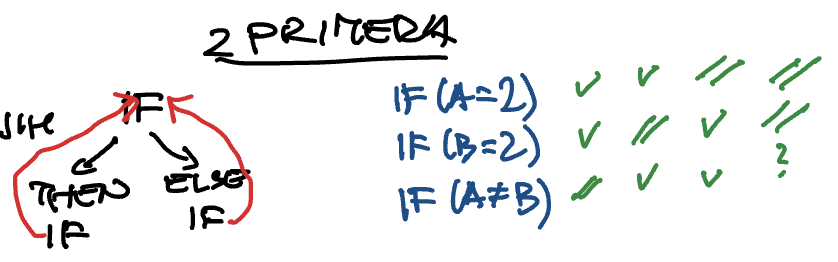 2 PRIMERA
IF
THEN
IF
ELSE
IF
IF (A=2) ✓ ✓ // //
IF (B=2) ✓ // ✓ //
IF (A≠B) // ✓ ✓ ?